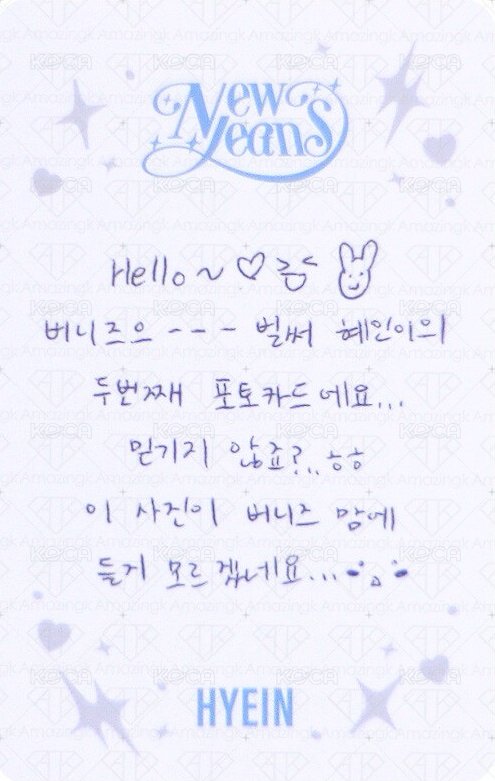 New
Jeans
Hello ~ ♡
버니즈으 - - - 벌써 혜인이의
두번째 포토카드네요...
믿기지 않죠?.. ㅎㅎ
이 사진이 버니즈 맘에
들지 모르겠네요...
HYEIN